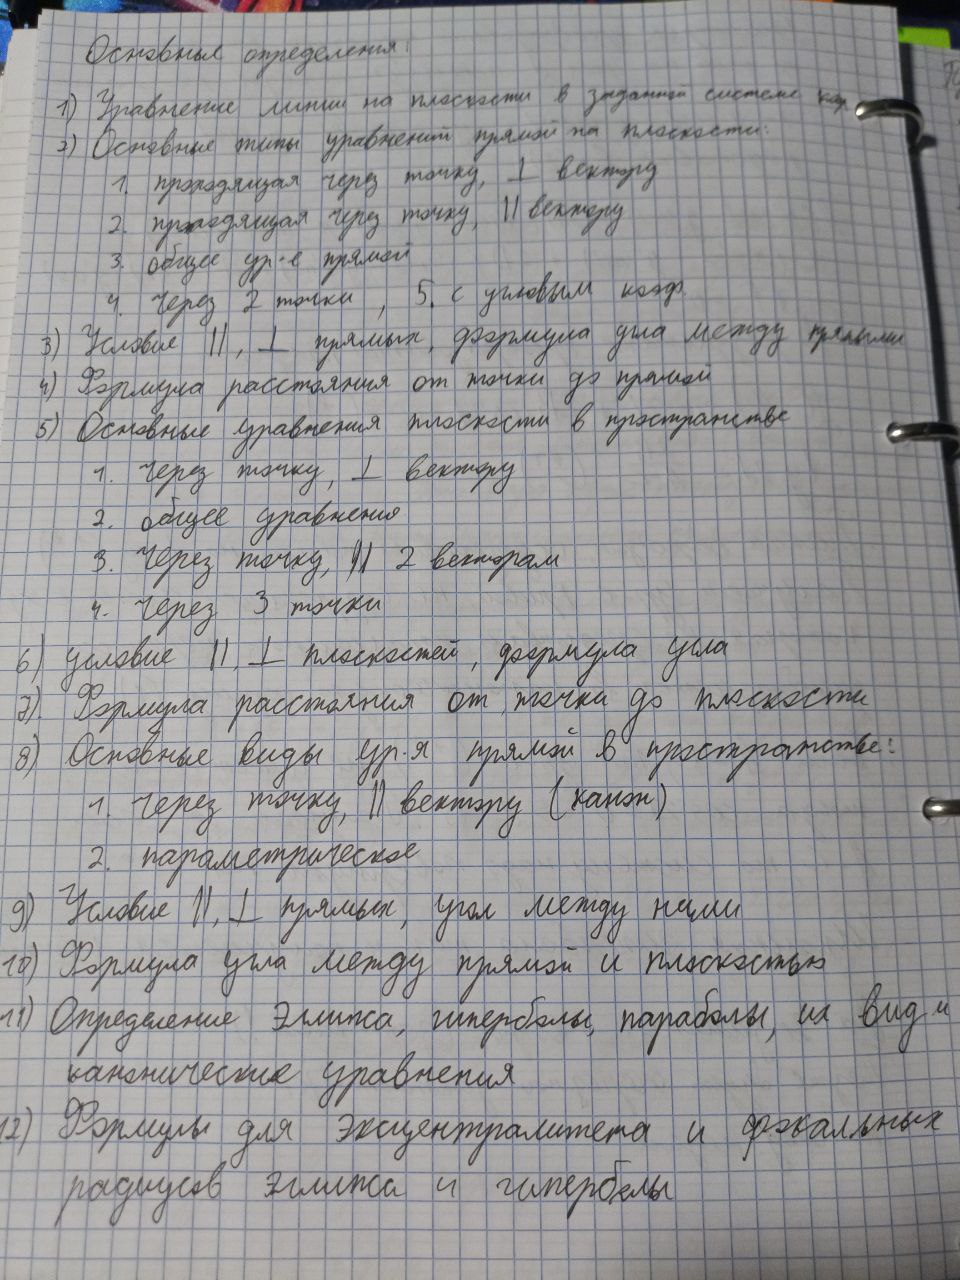 Основные определения:
1) Уравнение линии на плоскости в заданной системе кор.
2) Основные типы уравнений прямой на плоскости:
1. проходящая через точку, ⊥ вектору
2. проходящая через точку, || вектору
3. общее ур-е прямой
4. через 2 точки, 5. с угловым коэф.
3) Условие ||, ⊥ прямых, формула угла между прямыми
4) Формула расстояния от точки до прямой
5) Основные уравнения плоскости в пространстве
1. через точку, ⊥ вектору
2. общее уравнения
3. Через точку, || 2 векторам
4. через 3 точки
6) условие ||, ⊥ плоскостей, формула угла
7) Формула расстояния от точки до плоскости
8) Основные виды ур-я прямой в пространстве:
1. через точку, || вектору (канон)
2. параметрическое
9) Условие ||, ⊥ прямых, угол между ними
10) Формула угла между прямой и плоскостью
11) Определение эллипса, гиперболы, параболы, их вид и
канонические уравнения
12) Формулы для эксцентралитета и фокальных
радиусов эллипса и гиперболы